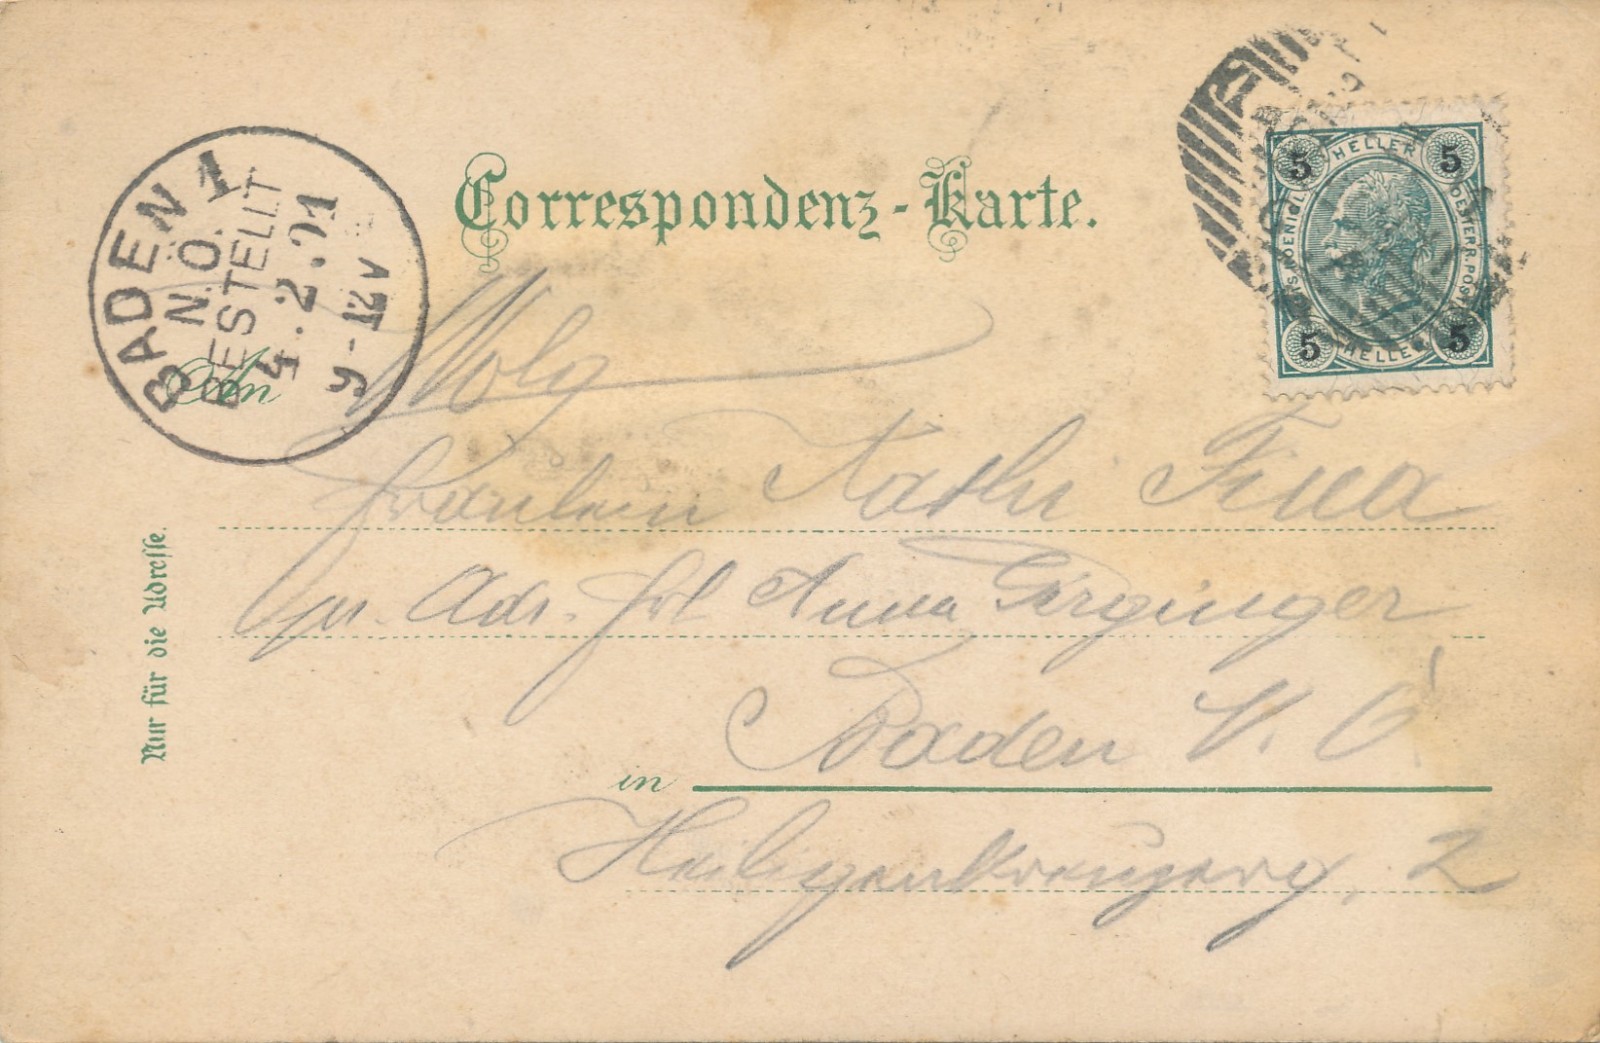 Correspondenz-Karte.
BADEN 1
N.Ö.
BESTELLT
4.2.01
9-12V
HELLER
5 5
KAIS. KOENIGL. OESTERR. POST
5 5
HELLER
An
Wolg
Fräulein Kathi
pr. Adr. Frl Anna
in Baden N. Ö
Heiligenkreuzerg. 2
Nur für die Adresse.